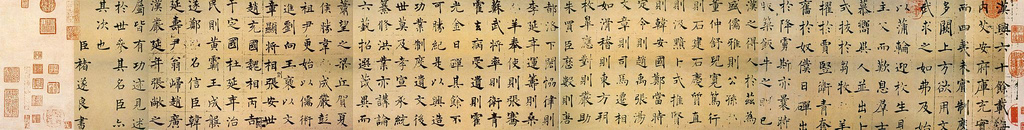 漢興六十餘載海
內艾安府庫充實
而四夷未賓制度
多闕上方欲用文
武求之如弗及始
以蒲輪迎枚生見
主父而歎息群士
慕嚮異人並出卜
式拔於芻牧弘羊
擢於賈豎衛青奮
於奴僕日磾出
於降虜斯亦曩時
版築飯牛之朋已
漢之得人於茲為
盛儒雅則公孫弘
董仲舒兒寬篤行
則石建石慶質直
則汲黯卜式推賢
則韓安國鄭當時
定令則趙禹張湯
文章則司馬遷相
如滑稽則東方朔
枚皋應對則嚴助
朱買臣曆數則唐
都洛下閎協律則
李延年運籌則桑
弘羊奉使則張騫
蘇武將率則衛青
霍去病受遺則霍
光金日磾其餘不
可勝紀是以興造
功業制度遺文後
世莫及孝宣承統
纂修洪業亦講論
六藝招選茂異而
蕭望之梁丘賀夏
侯勝韋玄成嚴彭
祖尹更始以儒術
進劉向王褒以文
章顯將相張安世
趙充國魏相丙吉
于定國杜延年治
民則黃霸王成龔
遂鄭弘召信臣韓
延壽尹翁歸趙廣
漢嚴延年張敞之
屬皆有功迹見述
於世參其名臣亦
其次也
臣褚遂良書